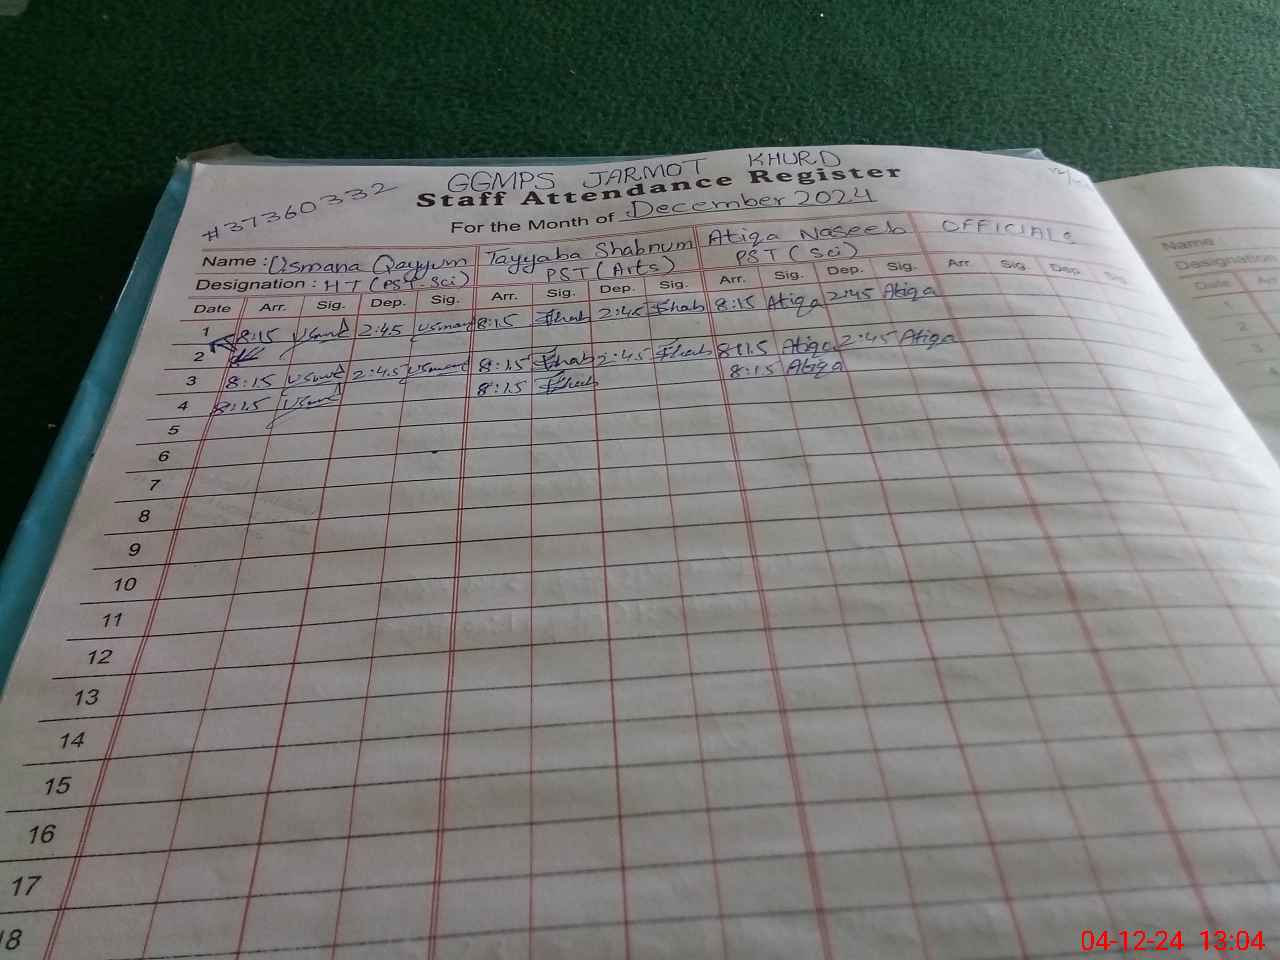 #37360332
GGMPS JARMOT KHURD
Staff Attendance Register
For the Month of December 2024
Name : Usmana Qayyum Tayyaba Shabnum Atiqa Naseeb OFFICIALS
Designation : HT (PST.Sci) PST (Arts) PST (Sci)
Date Arr. Sig. Dep. Sig. Arr. Sig. Dep. Sig. Arr. Sig. Dep. Sig. Arr. Sig. Dep. Sig.
1 8:15 2:45 8:15 Shab 2:45 Shab 8:15 Atiqa 2:45 Atiqa
2
3 8:15 2:45 8:15 Shab 2:45 Shab 8:15 Atiqa 2:45 Atiqa
4 8:15 8:15 Shab 8:15 Atiqa
5
6
7
8
9
10
11
12
13
14
15
16
17
18
Name
Designation
Date Arr
1
2
3
4
04-12-24 13:04